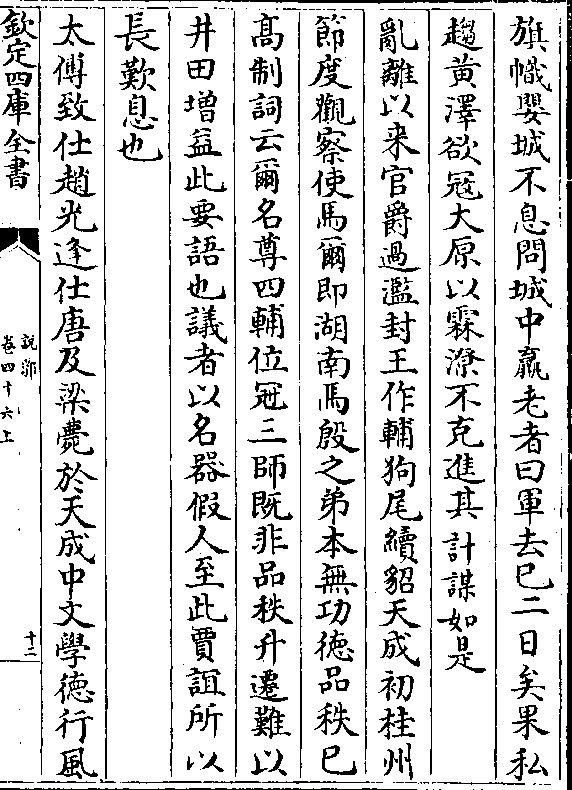 旗幟嬰城不息問城中羸老者曰軍去已二日矣果私
趨黄澤欲冦大原以霖潦不克進其計謀如是
亂離以来官爵過濫封王作輔狗尾續貂天成初桂州
節度觀察使馬爾即湖南馬殷之弟本無功德品秩已
髙制詞云爾名尊四輔位冠三師既非品秩升遷難以
井田增益此要語也議者以名器假人至此賈誼所以
長歎息也
太傅致仕趙光逢仕唐及梁薨於天成中文學德行風
欽定四庫全書
說郛
卷四十六上
十二